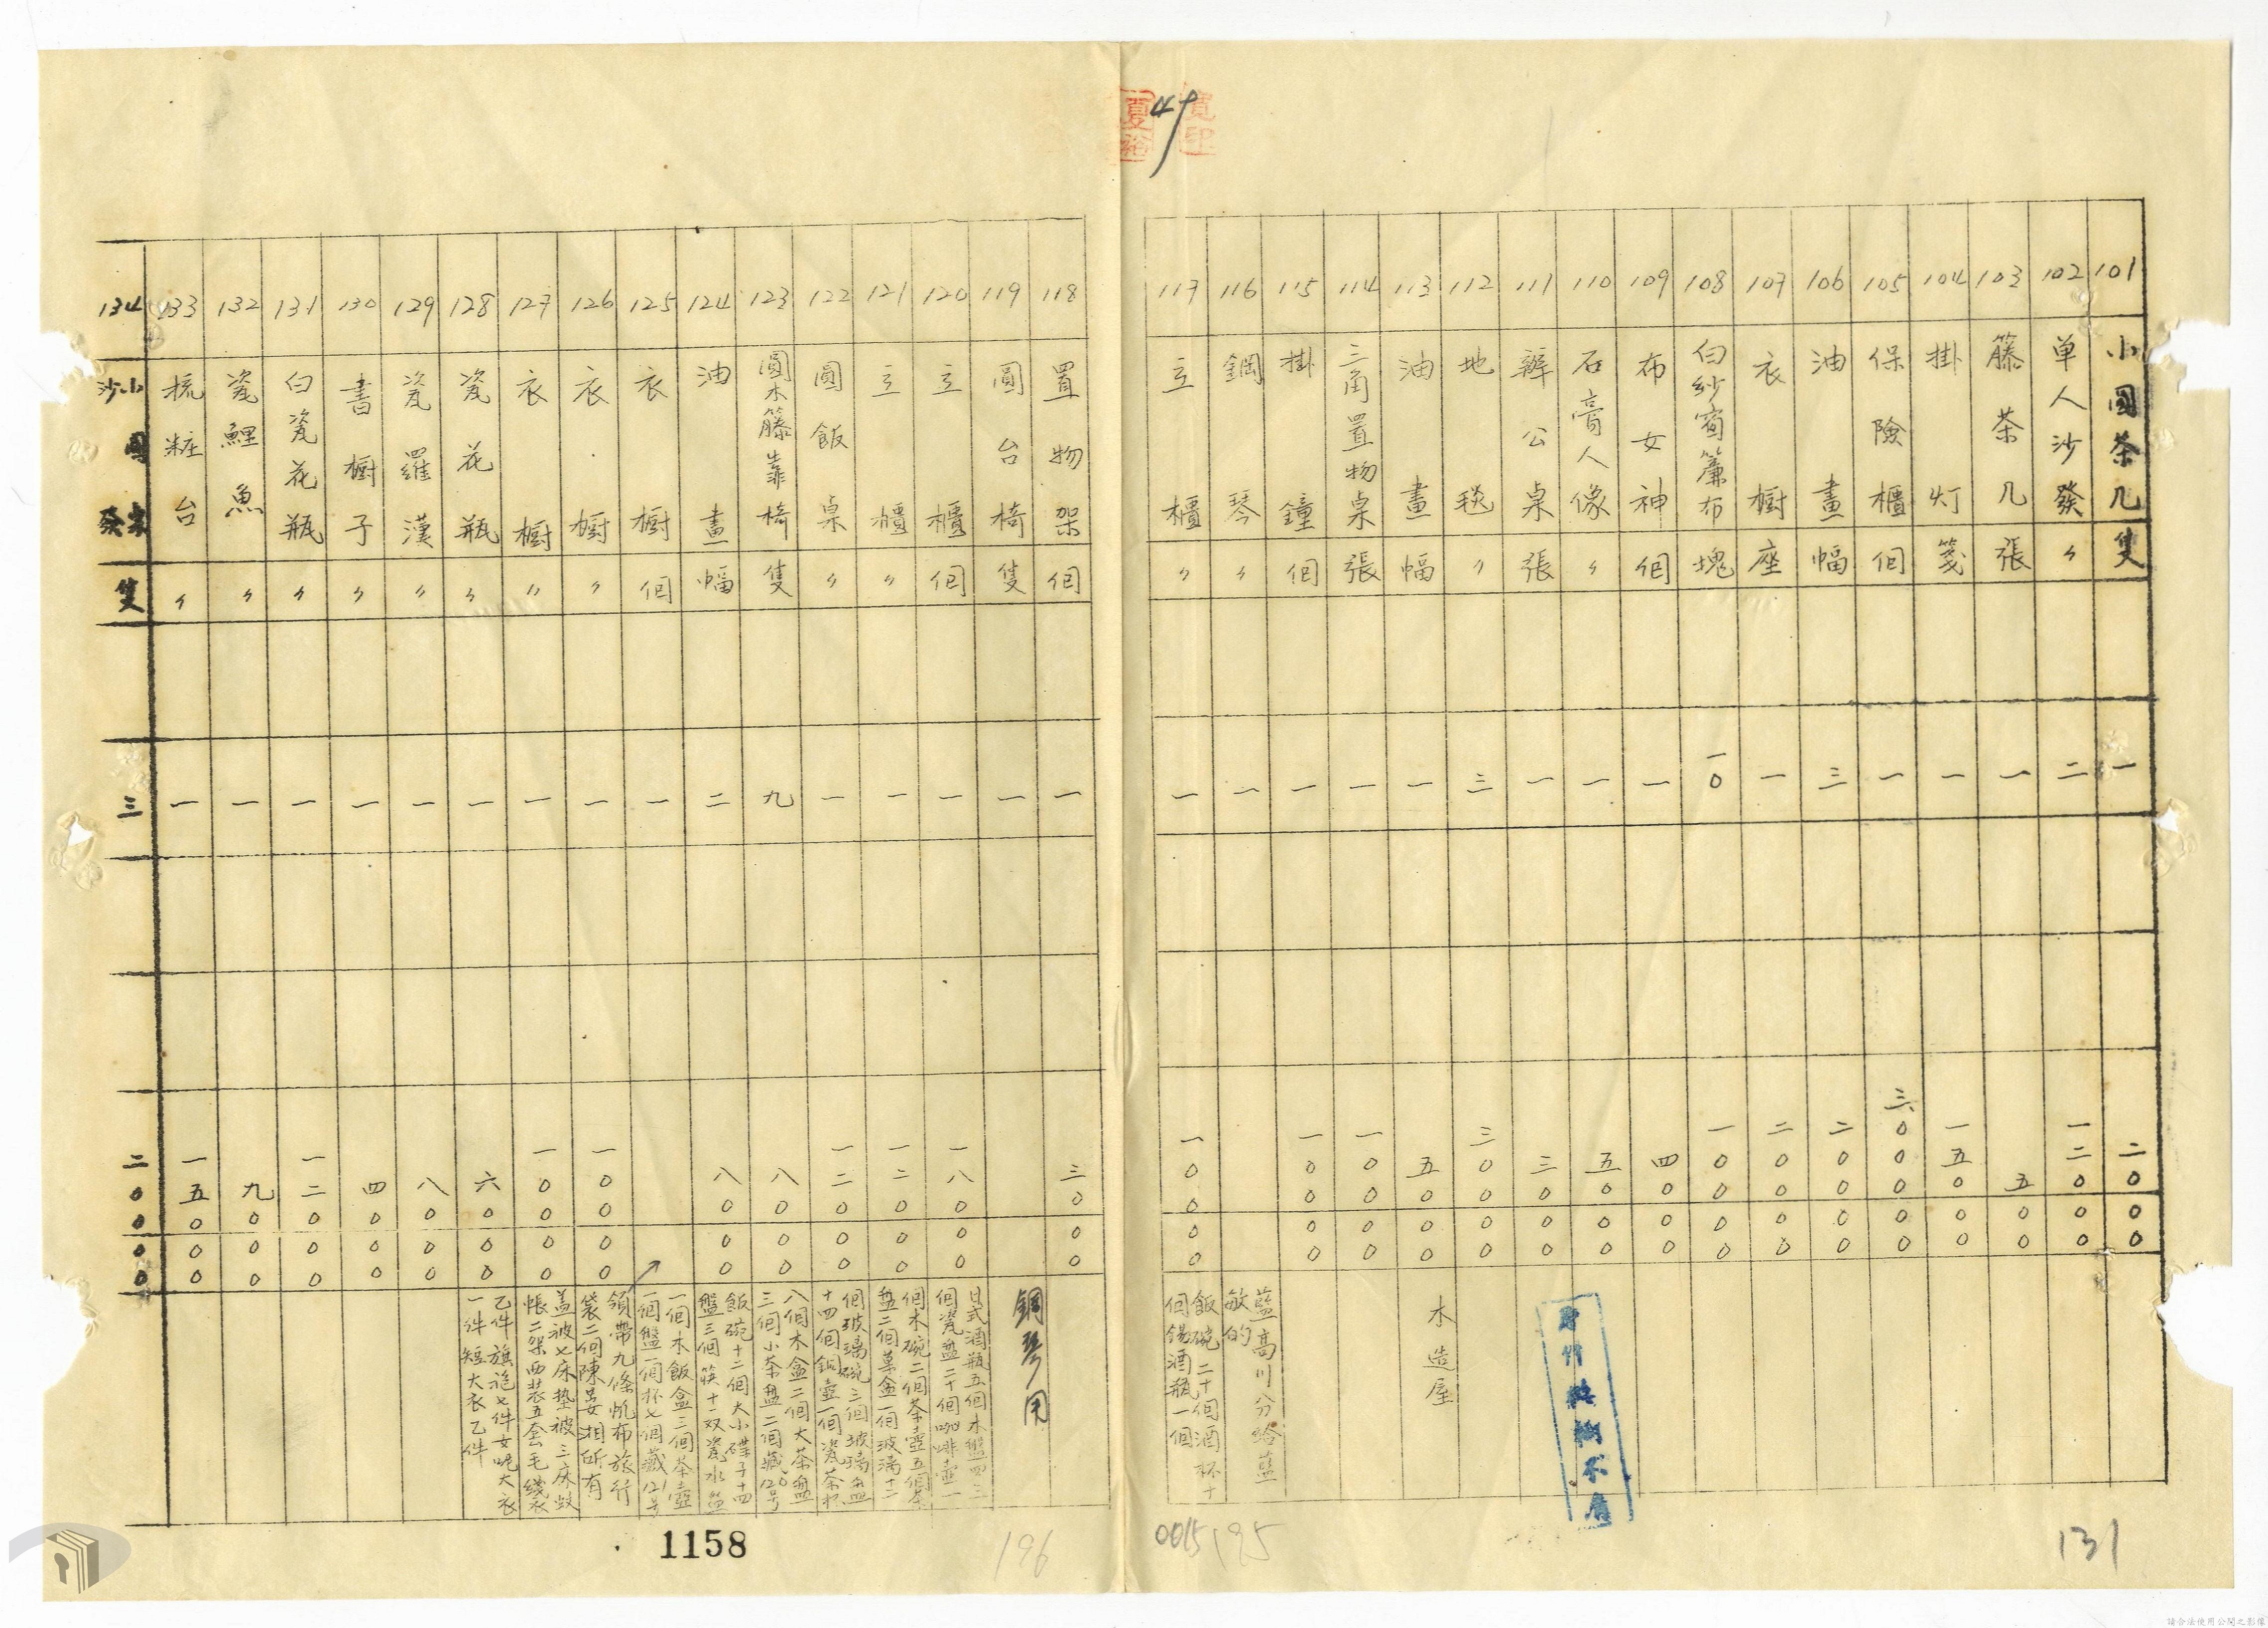 49
101 小圓茶几 隻 一 二〇〇〇〇
102 単人沙發 〃 二 一二〇〇〇
103 籐茶几 張 一 五〇〇
104 掛灯 箋 一 一五〇〇〇
105 保險櫃 個 一 三〇〇〇〇〇
106 油畫 幅 三 二〇〇〇〇
107 衣橱 座 一 二〇〇〇〇
108 白紗窗簾布 塊 一〇 一〇〇〇〇
109 布女神 個 一 四〇〇〇
110 石膏人像 〃 一 五〇〇〇
111 辦公桌 張 一 三〇〇〇
112 地毯 〃 三 三〇〇〇〇
113 油畫 幅 一 五〇〇〇 木造屋
114 三角置物桌 張 一 一〇〇〇〇
115 掛鐘 個 一 一〇〇〇〇
116 鋼琴 〃 一 藍高川分給藍敏的
117 立櫃 〃 一 一〇〇〇〇 飯碗二十個酒杯十個錫酒瓶一個
118 置物架 個 一 三〇〇〇
119 圓台椅 隻 一 鋼琴用
120 立櫃 個 一 一八〇〇〇
121 立櫃 〃 一 一二〇〇〇
122 圓飯桌 〃 一 一二〇〇〇
123 圓木籐靠椅 隻 九 八〇〇〇
124 油畫 幅 二 八〇〇〇
125 衣橱 個 一
126 衣橱 〃 一 一〇〇〇〇
127 衣橱 〃 一 一〇〇〇〇
128 瓷花瓶 〃 一 六〇〇〇
129 瓷羅漢 〃 一 八〇〇〇
130 書橱子 〃 一 四〇〇〇
131 白瓷花瓶 〃 一 一二〇〇〇
132 瓷鯉魚 〃 一 九〇〇〇
133 梳粧台 〃 一 一五〇〇〇
134 小圓沙發 隻 三 二〇〇〇〇
日式酒瓶五個木盤四
個瓷盤二十個咖啡壺一
個木碗二個茶壺五個茶
盤二個草盒一個玻璃十二
個玻璃碗三個玻璃盘
十四個銅壺一個瓷茶杯
八個木盒二個大茶盤
三個小茶盤二個藏120号
飯碗十二個大小碟子十四
盤三個筷十一双瓷水盆
一個木飯盒三個茶壺
一個盤一個杯七個藏121号
領帶九條帆布旅行
袋二個陳晏湘所有
盖被七床垫被三床蚊
帳二架西装五套毛綫衣
乙件旗袍七件女呢大衣
一件短大衣乙件
1158
196
0015
195
131
請合法使用公開之影像